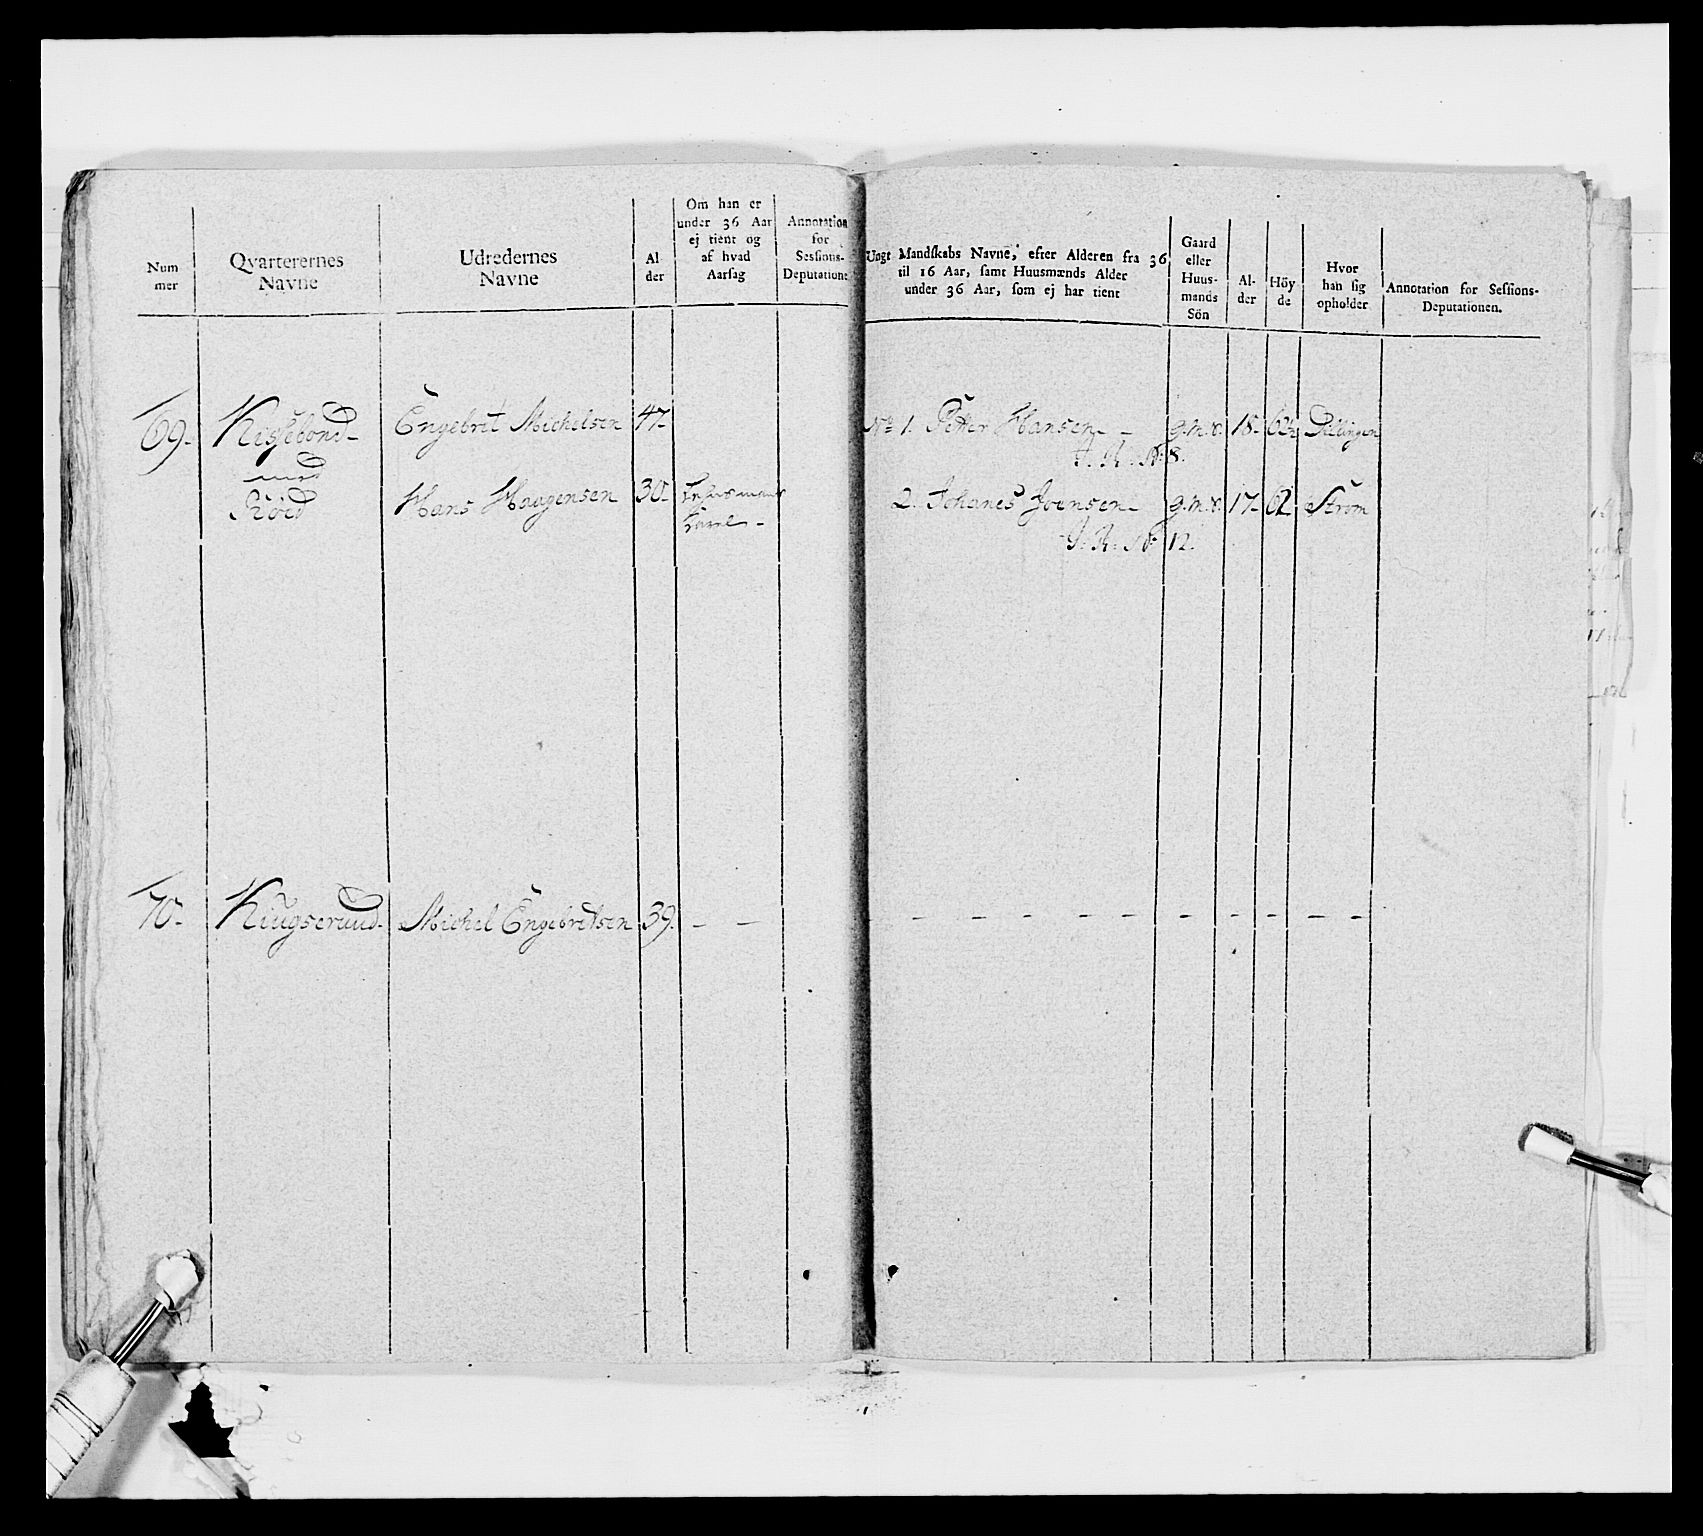 Num
mer
Qvarterernes
Navne
Udredernes
Navne
Al
der
Om han er
under 36 Aar
ej tient og
af hvad
Aarsag
Annotation
for
Sessions-
Deputationen
69.
Kissebond-
med
Röed
Engebret Michelsen 47-
Hans Haagensen 30-
70-
Kiugseruud-
Michel Engebretsen 39. - -
Ungt Mandskabs Navne, efter Alderen fra 36
til 16 Aar, samt Huusmænds Alder
under 36 Aar, som ej har tient
Gaard
eller
Huus-
mands
Sön
Al-
der
Höy
de
Hvor
han sig
opholder
Annotation for Sessions-
Deputationen.
No 1. Petter Hansen - g.m.s. 18- 62½ Dillingen
No 8.
2. Johanes Joensen- g.m.s. 17- 62 Ström
No 12.
- - - - - - - - - - -